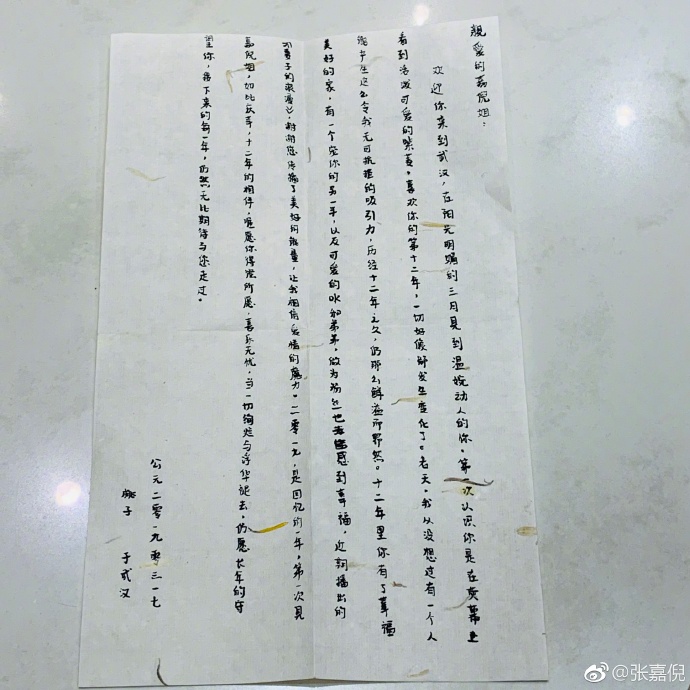 親爱的嘉倪姐：
欢迎你来到武汉，在阳光明媚的三月见到温婉动人的你。第一次认识你是在荧幕上
看到活泼可爱的紫菱。喜欢你的第十二年，一切好像都发生变化了。老天。我从没想过有一个人
能产生这么令我无可抗拒的吸引力，历经十二年之久，仍那么鲜活而野然。十二年里你有了幸福
美好的家，有一个宠你的另一半，以及可爱的水和弟弟。做为粉丝也无比感到幸福，近期播出的
妻子的浪漫，谢谢您传播了美好的能量，让我相信爱情的魔力。二零一九，是回忆的一年，第一次见
嘉倪姐，如比庆幸，十二年的相伴，唯愿你得偿所愿，喜乐无忧，当一切绚烂与浮华褪去，仍愿长年的守
望你，接下来的每一年，仍然无比期待与您走过。
公元二零一九零三一七
子 于武汉
@张嘉倪